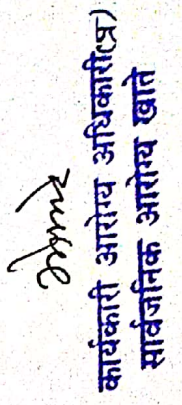 कार्यकारी आरोग्य अधिकारी(प्र)
सार्वजनिक आरोग्य खाते